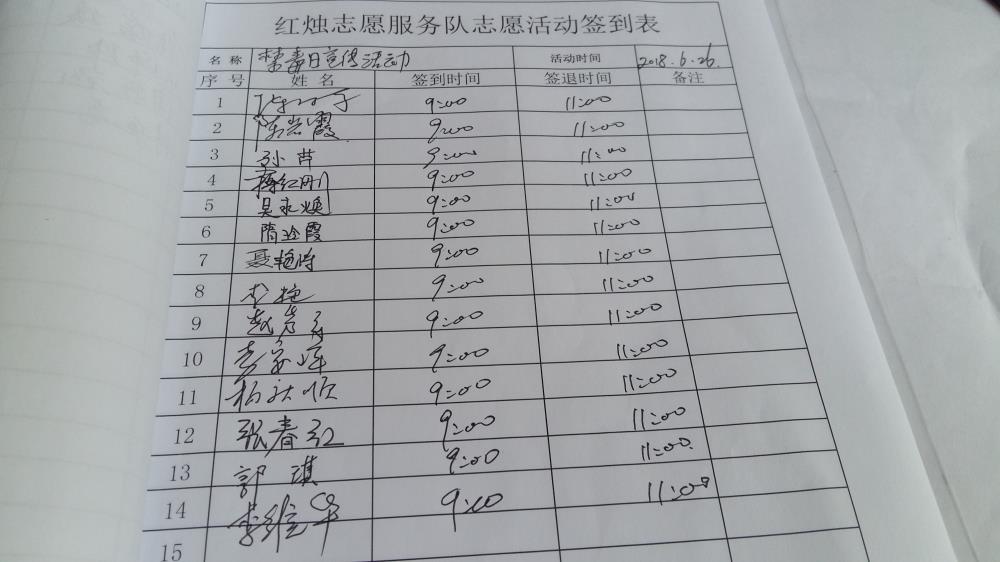 红烛志愿服务队志愿活动签到表
名称 禁毒日宣传活动 活动时间 2018.6.26.
序号 姓名 签到时间 签退时间 备注
1 9:00 11:00
2 陈岩霞 9:00 11:00
3 孙芹 9:00 11:00
4 红刚 9:00 11:00
5 吴永焕 9:00 11:00
6 隋玲霞 9:00 11:00
7 聂艳涛 9:00 11:00
8 9:00 11:00
9 赵 9:00 11:00
10 9:00 11:00
11 9:00 11:00
12 张春红 9:00 11:00
13 郭琪 9:00 11:00.
14 李维华 9:00 11:00
15